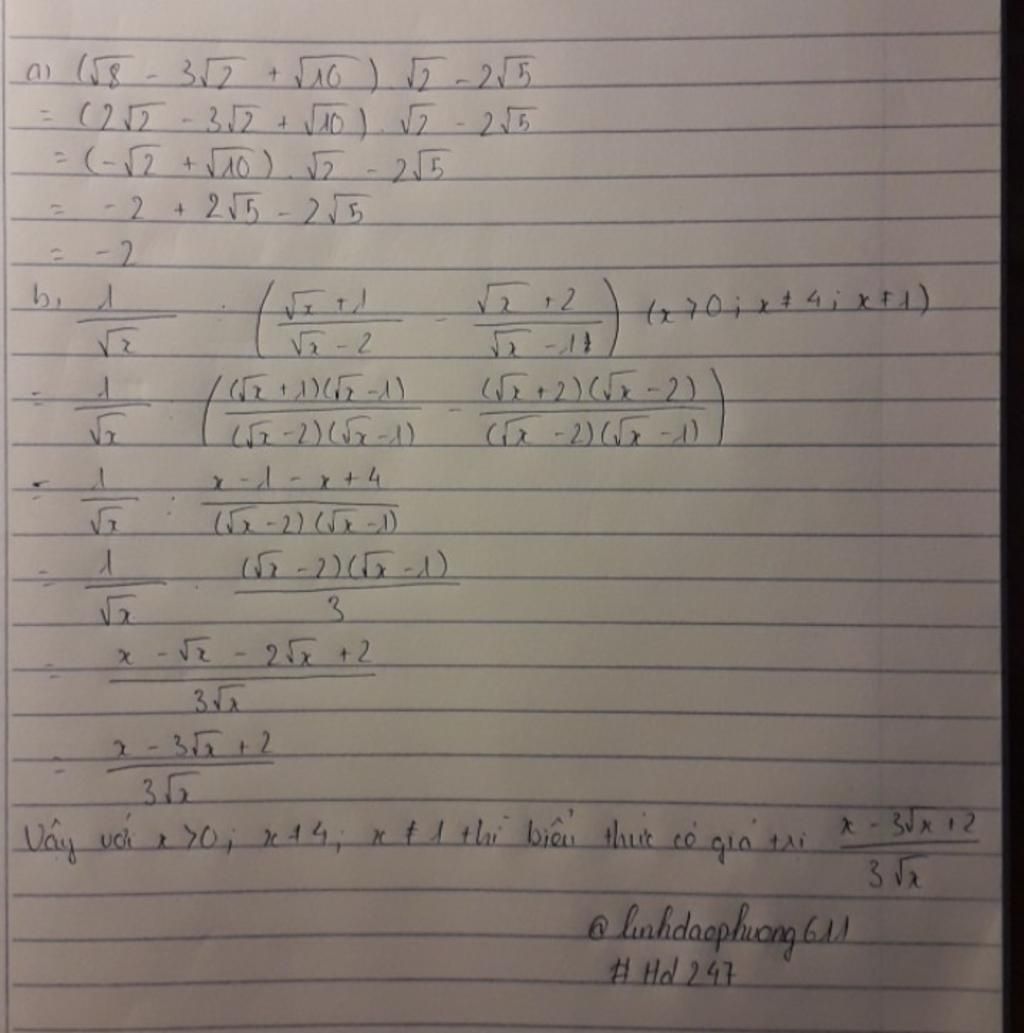 a) (√8 - 3√2 + √10) . √2 - 2√5
= (2√2 - 3√2 + √10) . √2 - 2√5
= (-√2 + √10) . √2 - 2√5
= -2 + 2√5 - 2√5
= -2
b, 1/√x : ((√x + 1)/(√x - 2) - (√x + 2)/(√x - 1)) (x > 0 ; x ≠ 4 ; x ≠ 1)
= 1/√x : (((√x + 1)(√x - 1))/((√x - 2)(√x - 1)) - ((√x + 2)(√x - 2))/((√x - 2)(√x - 1)))
= 1/√x : (x - 1 - x + 4)/((√x - 2)(√x - 1))
= 1/√x . ((√x - 2)(√x - 1))/3
= (x - √x - 2√x + 2)/(3√x)
= (x - 3√x + 2)/(3√x)
Vậy với x > 0 ; x ≠ 4 ; x ≠ 1 thì biểu thức có giá trị (x - 3√x + 2)/(3√x)
@linhdaophuong611
# Hd 247